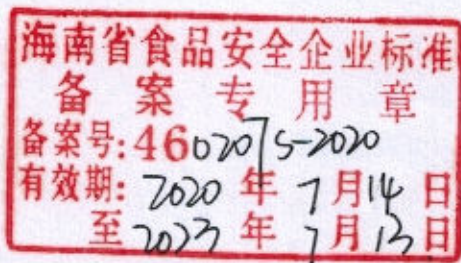 海南省食品安全企业标准
备案专用章
备案号:460207S-2020
有效期:2020年7月14日
至2023年7月13日